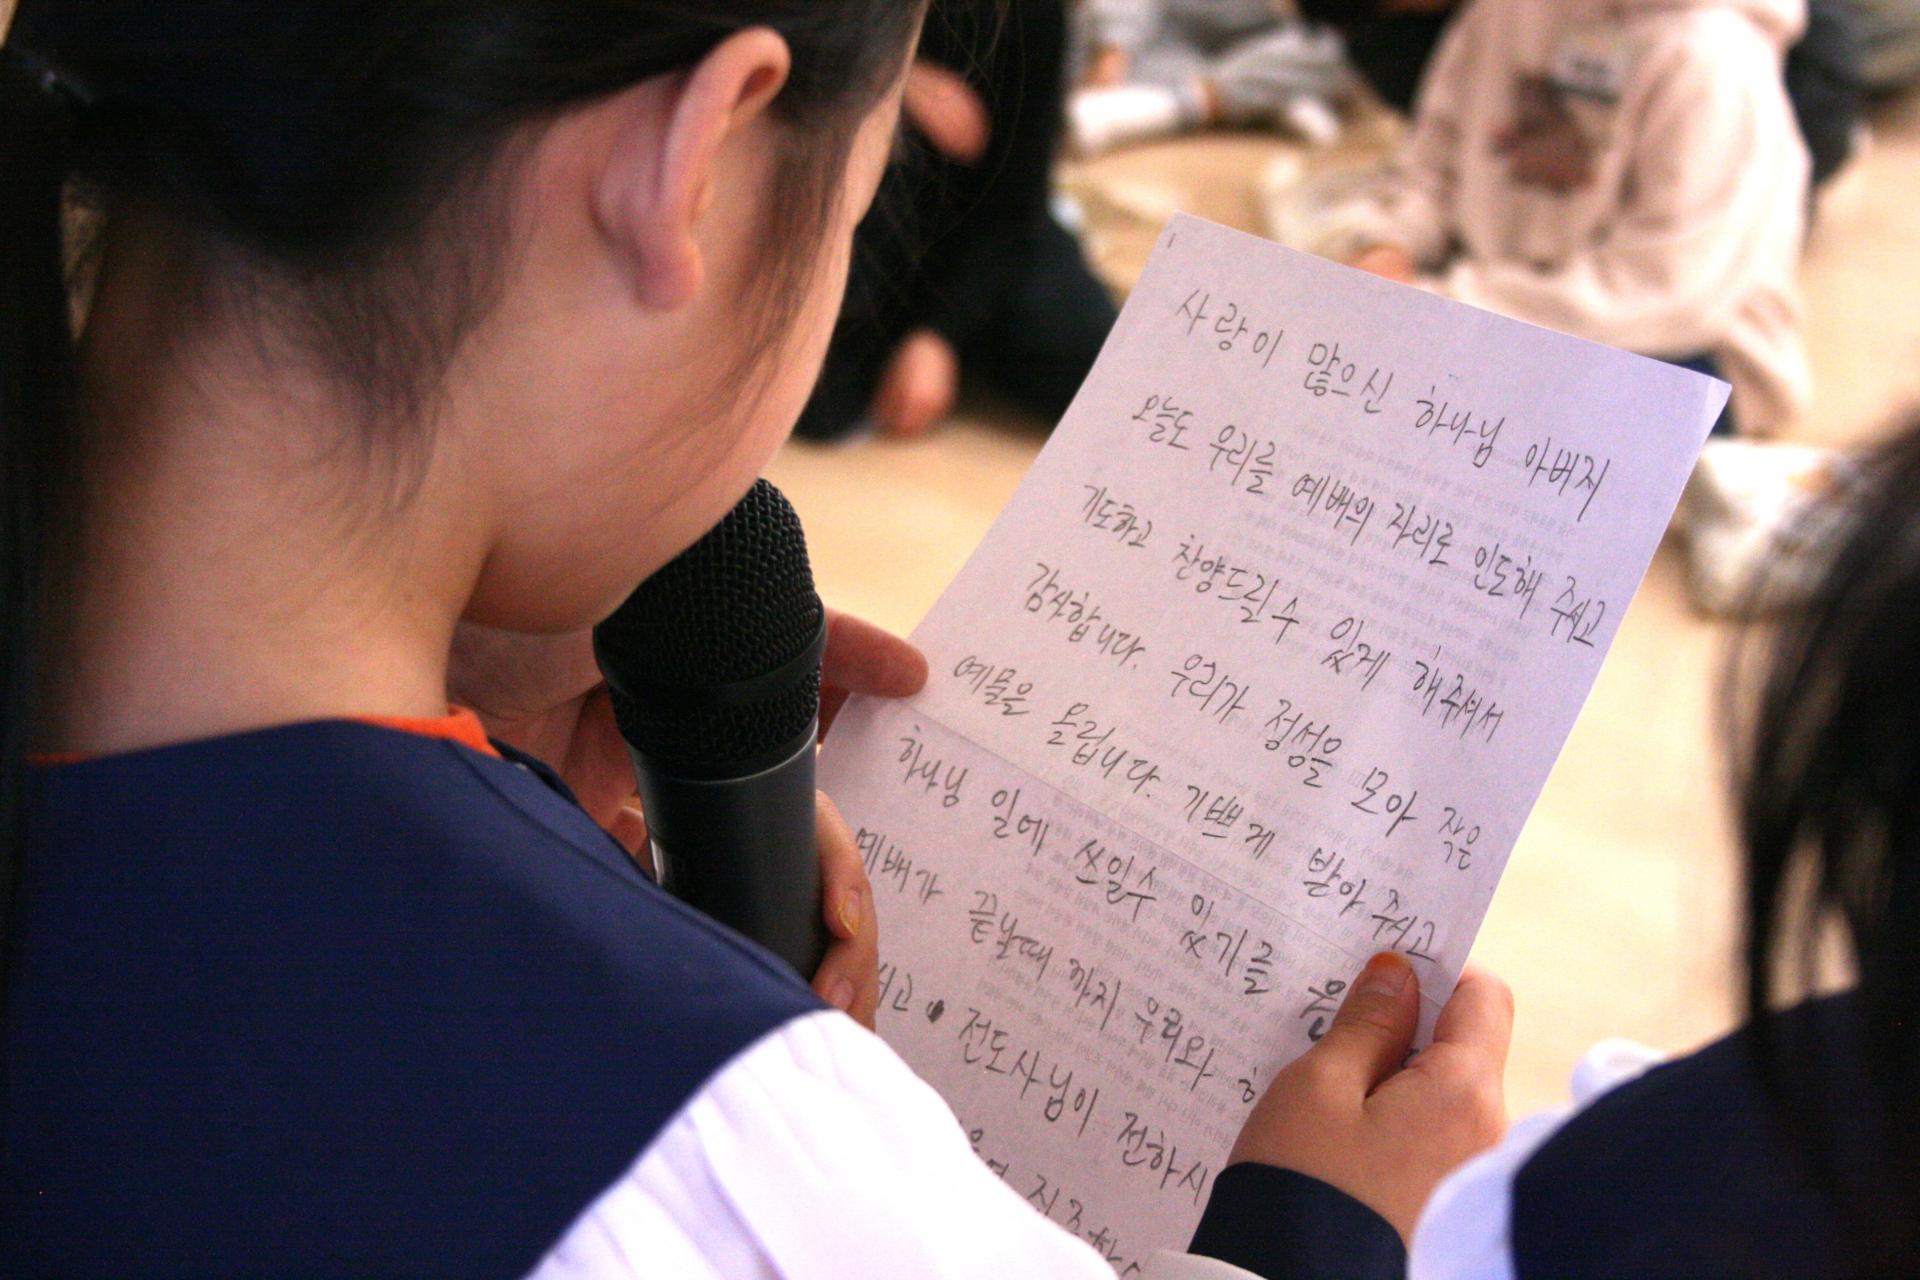 사랑이 많으신 하나님 아버지
오늘도 우리를 예배의 자리로 인도해 주시고
기도하고 찬양드릴 수 있게 해주셔서
감사합니다. 우리가 정성을 모아 작은
예물을 올립니다. 기쁘게 받아 주시고
하나님 일에 쓰일수 있기를
예배가 끝날때 까지 우리와
전도사님이 전하시